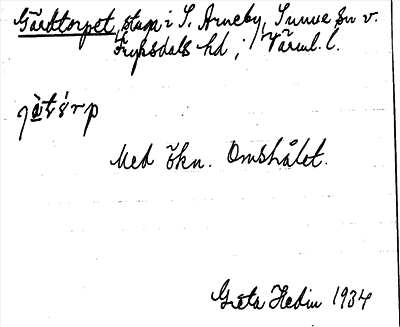 Gårdtorpet, stam i S. Arneby, Sunne sn v.
Fryksdals hd i Värml. l.
Med ökn. Omshålet.
Greta Hedin 1934